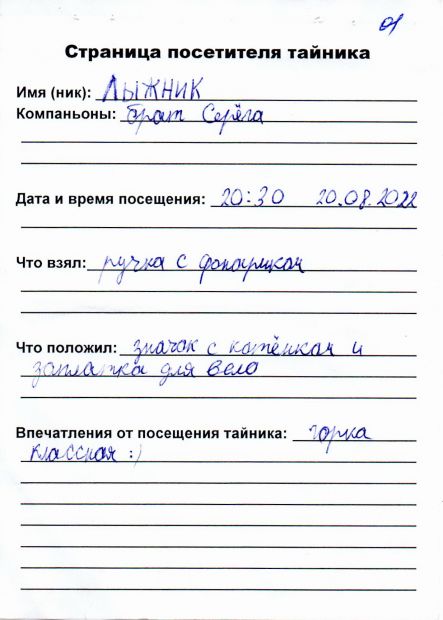 01
Страница посетителя тайника
Имя (ник): ЛЫЖНИК
Компаньоны: брат Серёга
Дата и время посещения: 20:30 20.08.2022
Что взял: ручка с фонариком
Что положил: значок с котёнком и
заплатка для вело
Впечатления от посещения тайника: горка
классная :)